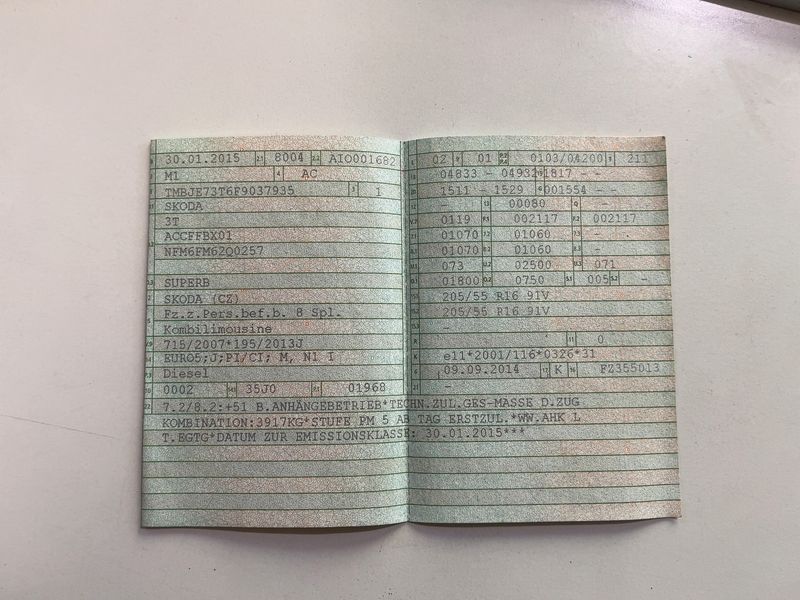 30.01.2015 8004 AIO001682
M1 AC
TMBJE73T6F9037935 1
SKODA
3T
ACCFFBX01
NFM6FM62Q0257
SUPERB
SKODA (CZ)
Fz.z.Pers.bef.b. 8 Spl.
Kombilimousine
715/2007*195/2013J
EURO5;J;PI/CI; M, N1 I
Diesel
0002 35J0 01968
02 01 0103/04200 211
04833 - 04932 1817 - -
1511 - 1529 001554 - -
- 00080 -
0119 002117 002117
01070 01060 -
01070 01060 -
073 02500 071
01800 0750 005 -
205/55 R16 91V
205/55 R16 91V
-
- 0
e11*2001/116*0326*31
09.09.2014 K FZ355013
-
7.2/8.2:+51 B.ANHÄNGEBETRIEB*TECHN.ZUL.GES-MASSE D.ZUG
KOMBINATION:3917KG*STUFE PM 5 AB TAG ERSTZUL.*WW.AHK L
T.EGTG*DATUM ZUR EMISSIONSKLASSE: 30.01.2015***